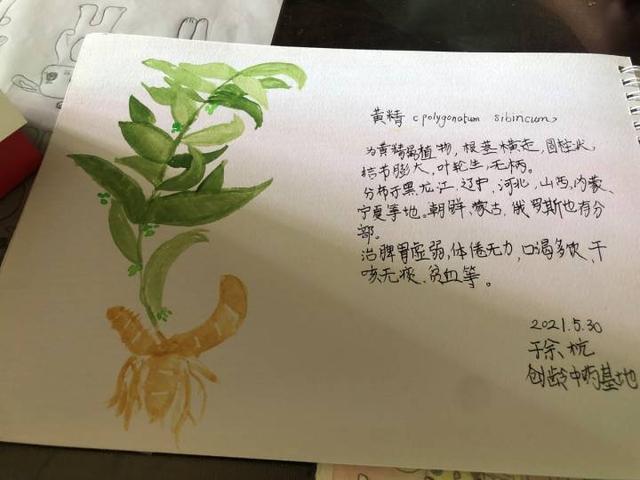 黄精 c polygonatum sibincum,
为黄精属植物,根茎横走,圆柱状,
结节膨大,叶轮生,无柄。
分布于黑龙江、辽宁、河北、山西、内蒙、
宁夏等地。朝鲜、蒙古、俄罗斯也有分
部。
治脾胃虚弱,体倦无力,口渴多饮、干
咳无痰、贫血等。
2021.5.30
于余杭
创龄中药基地